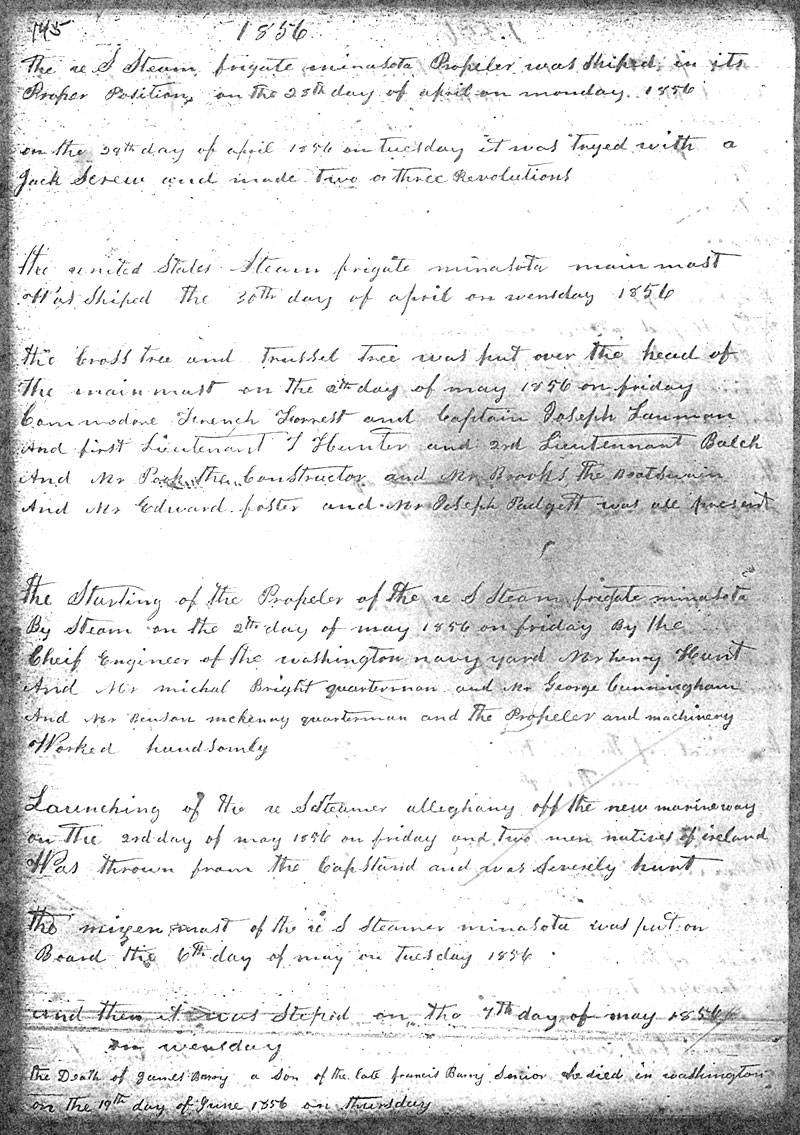 145 1856
the u S Steam frigate minasota Propeler was Shiped in its
Proper Position on the 28th day of april on monday 1856
on the 29th day of april 1856 on tuesday it was tryed with a
Jack Screw and made two or three Revolutions
the united States Steam frigate minasota main mast
Was Shiped the 30th day of april on wensday 1856
the Cross tree and trussel tree was put over the head of
The main mast on the 2th day of may 1856 on friday
Commodore French Forrest and Captain Joseph Lanman
And first Lieutenant T Hunter and 2rd Lieutennant Balch
And Mr Pook the Constructor and Mr Brooks The Boatswain
And Mr Edward foster and Mr Joseph Padgett was all present
the Starting of the Propeler of the u S Steam frigate minasota
By Steam on the 2th day of may 1856 on friday By the
Cheif Engineer of the washington navy yard Mr henry Hunt
And Mr michal Bright quarterman and Mr George Cunningham
And Mr Benson mckenny quarterman and the Propeler and machinery
Worked handsomly
Launching of the u S Steamer alleghany off the new marineway
on the 2rd day of may 1856 on friday and two men natives of ireland
Was thrown from the Capstand and was Severely hurt
the mizen mast of the u S Steamer minasota was put on
Board the 6th day of may on Tuesday 1856
and then it was Steped on the 7th day of may 1856
on wensday
the Death of James Barry a Son of the late francis Barry Senior he died in washington
on the 19th day of June 1856 on thursday